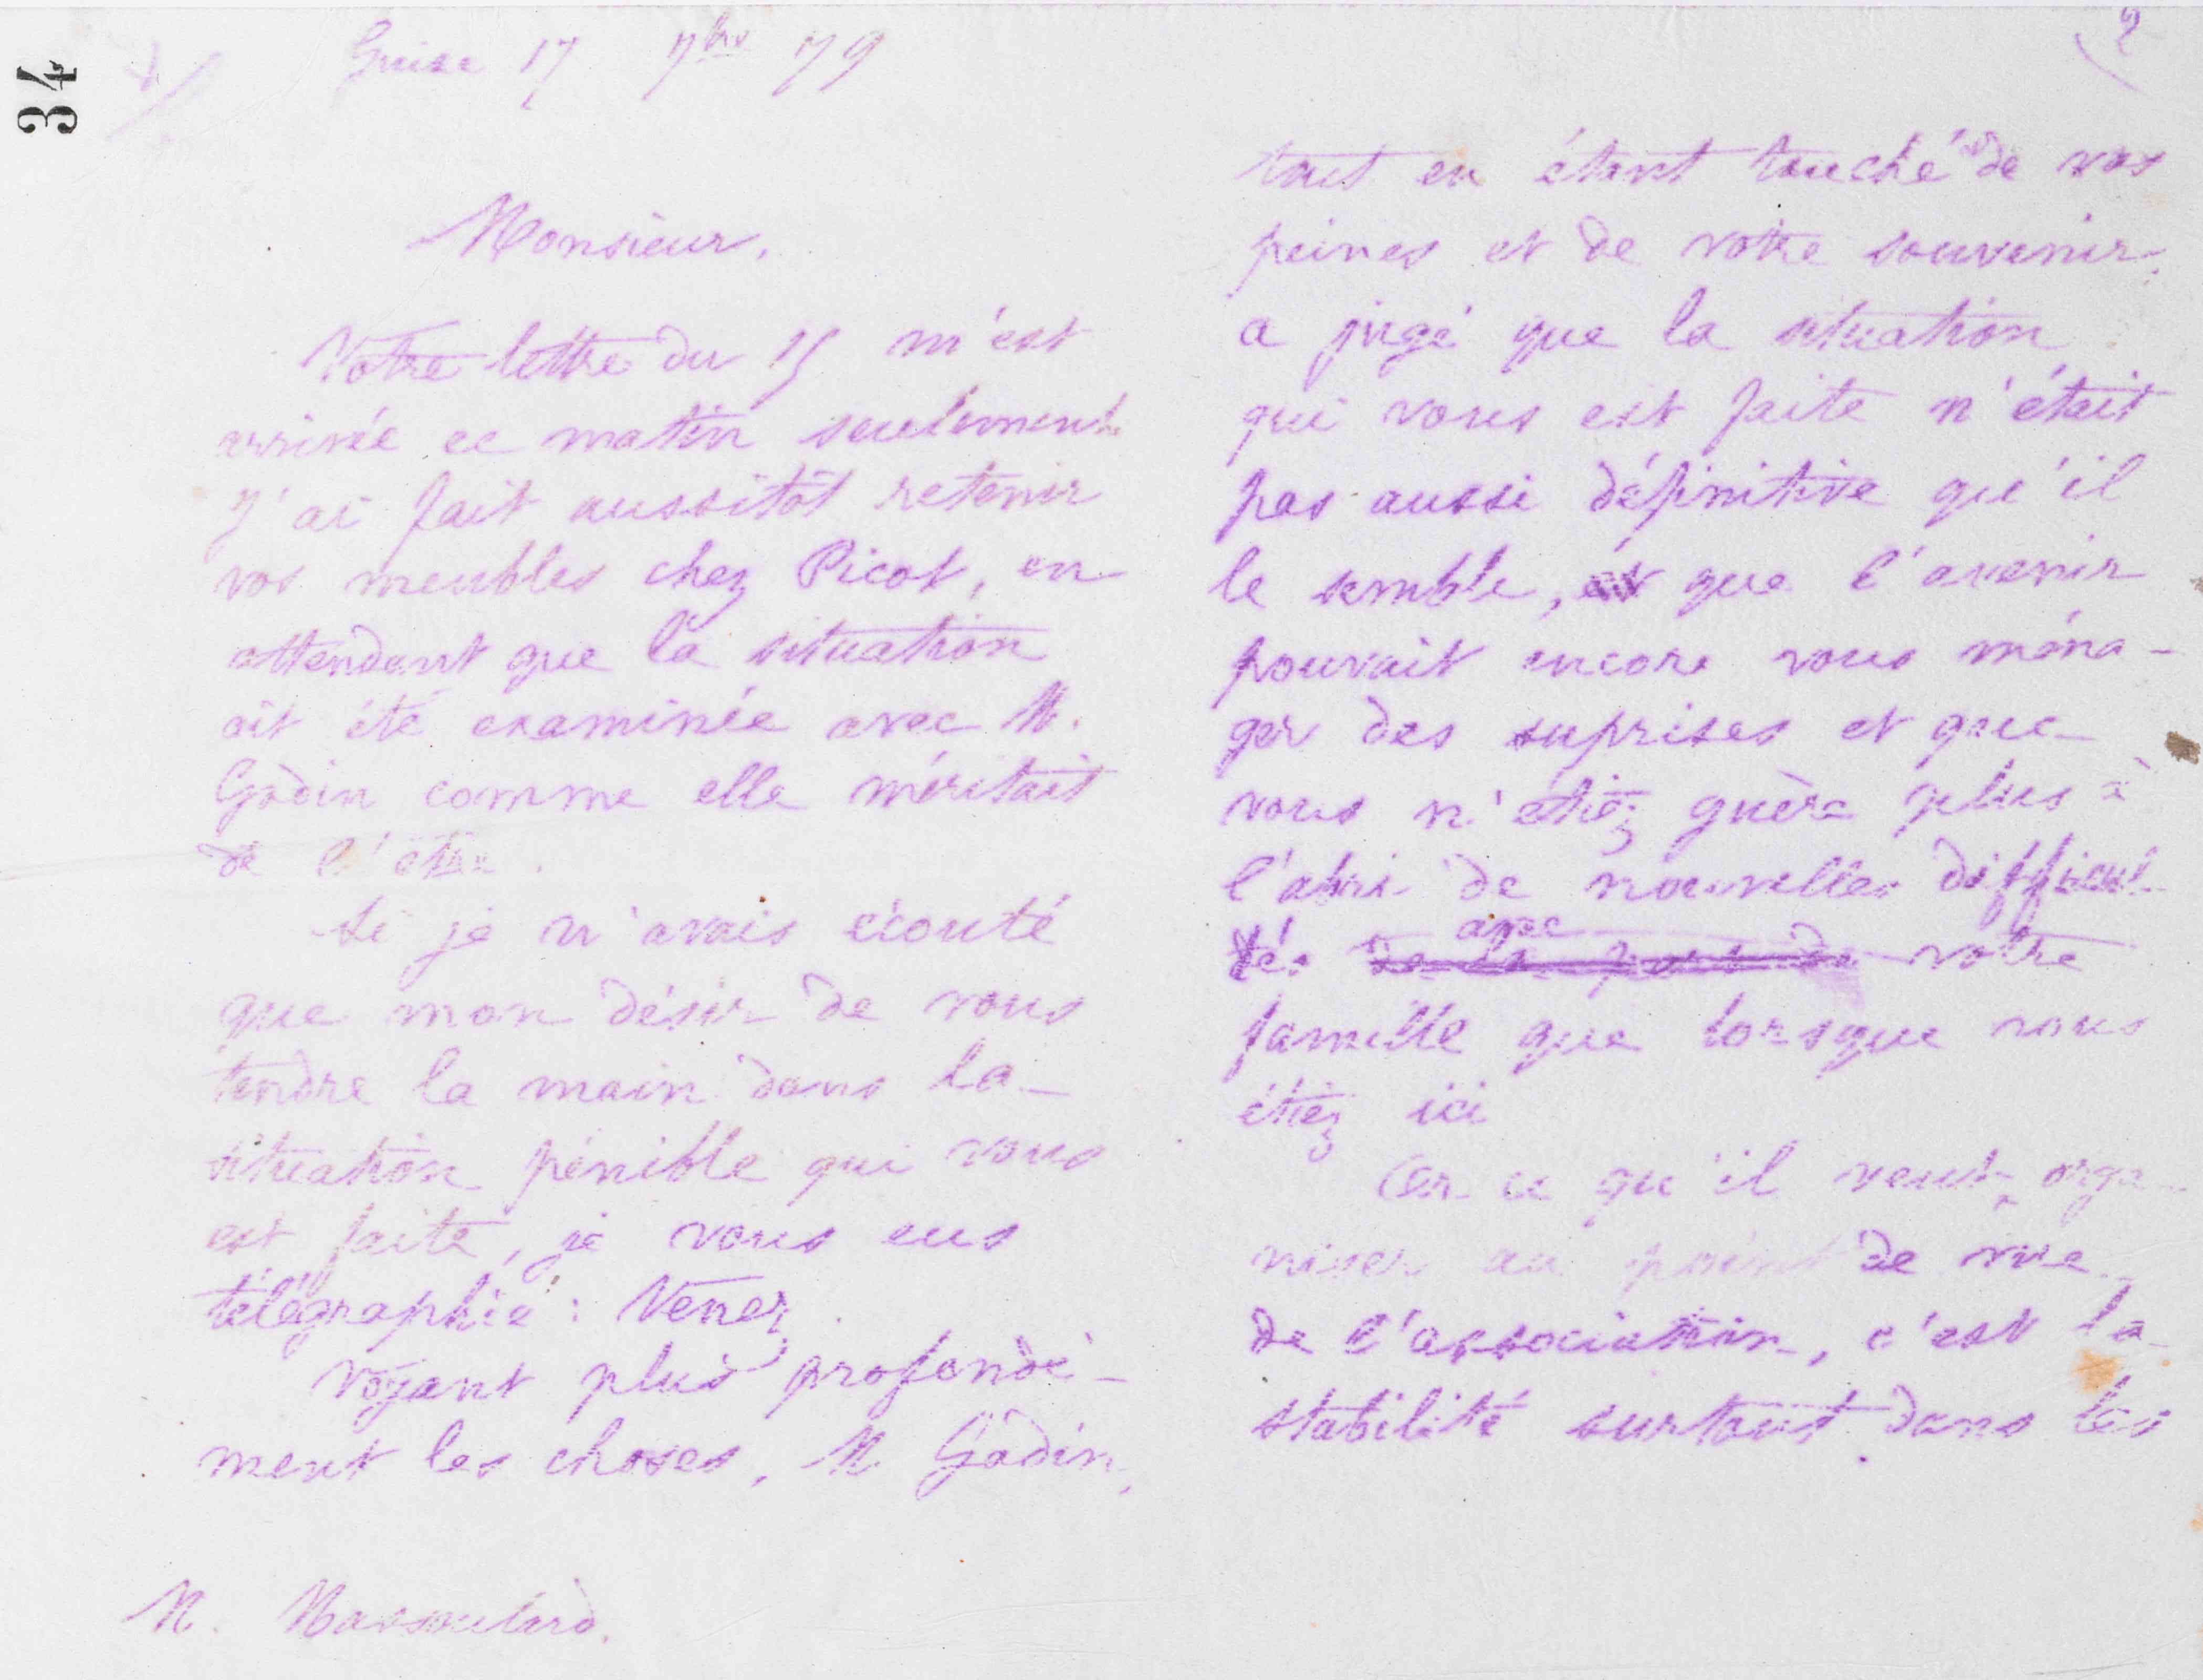 34
Guise 17 7bre 79
Monsieur,
Votre lettre du 15 m'est
arrivée ce matin seulement.
J'ai fait aussitôt retenir
vos meubles chez Picot, en
attendant que la situation
ait été examinée avec M.
Godin comme elle méritait
de l'être.
Si je n'avais écouté
que mon désir de vous
tendre la main dans la
situation pénible qui vous
est faite, je vous eus
télégraphié : Venez.
Voyant plus profondé-
ment les choses, M. Godin,
M. Massoulard.
2
tout en étant touché de vos
peines et de votre souvenir,
a jugé que la situation
qui vous est faite n'était
pas aussi définitive qu'il
le semble, et que l'avenir
pouvait encore vous ména-
ger des suprises et que
vous n'étiez guère plus à
l'abri de nouvelles difficul-
tés de la part de avec votre
famille que lorsque vous
étiez ici
Or ce qu'il veut orga-
niser au point de vue
de l'association, c'est la
stabilité surtout dans les